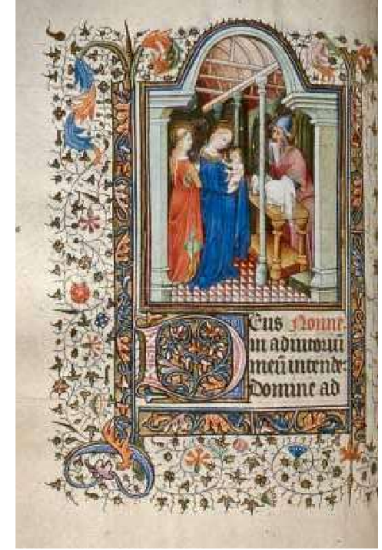 Eus None.
in adiutoriū
meū intende:
Domine ad